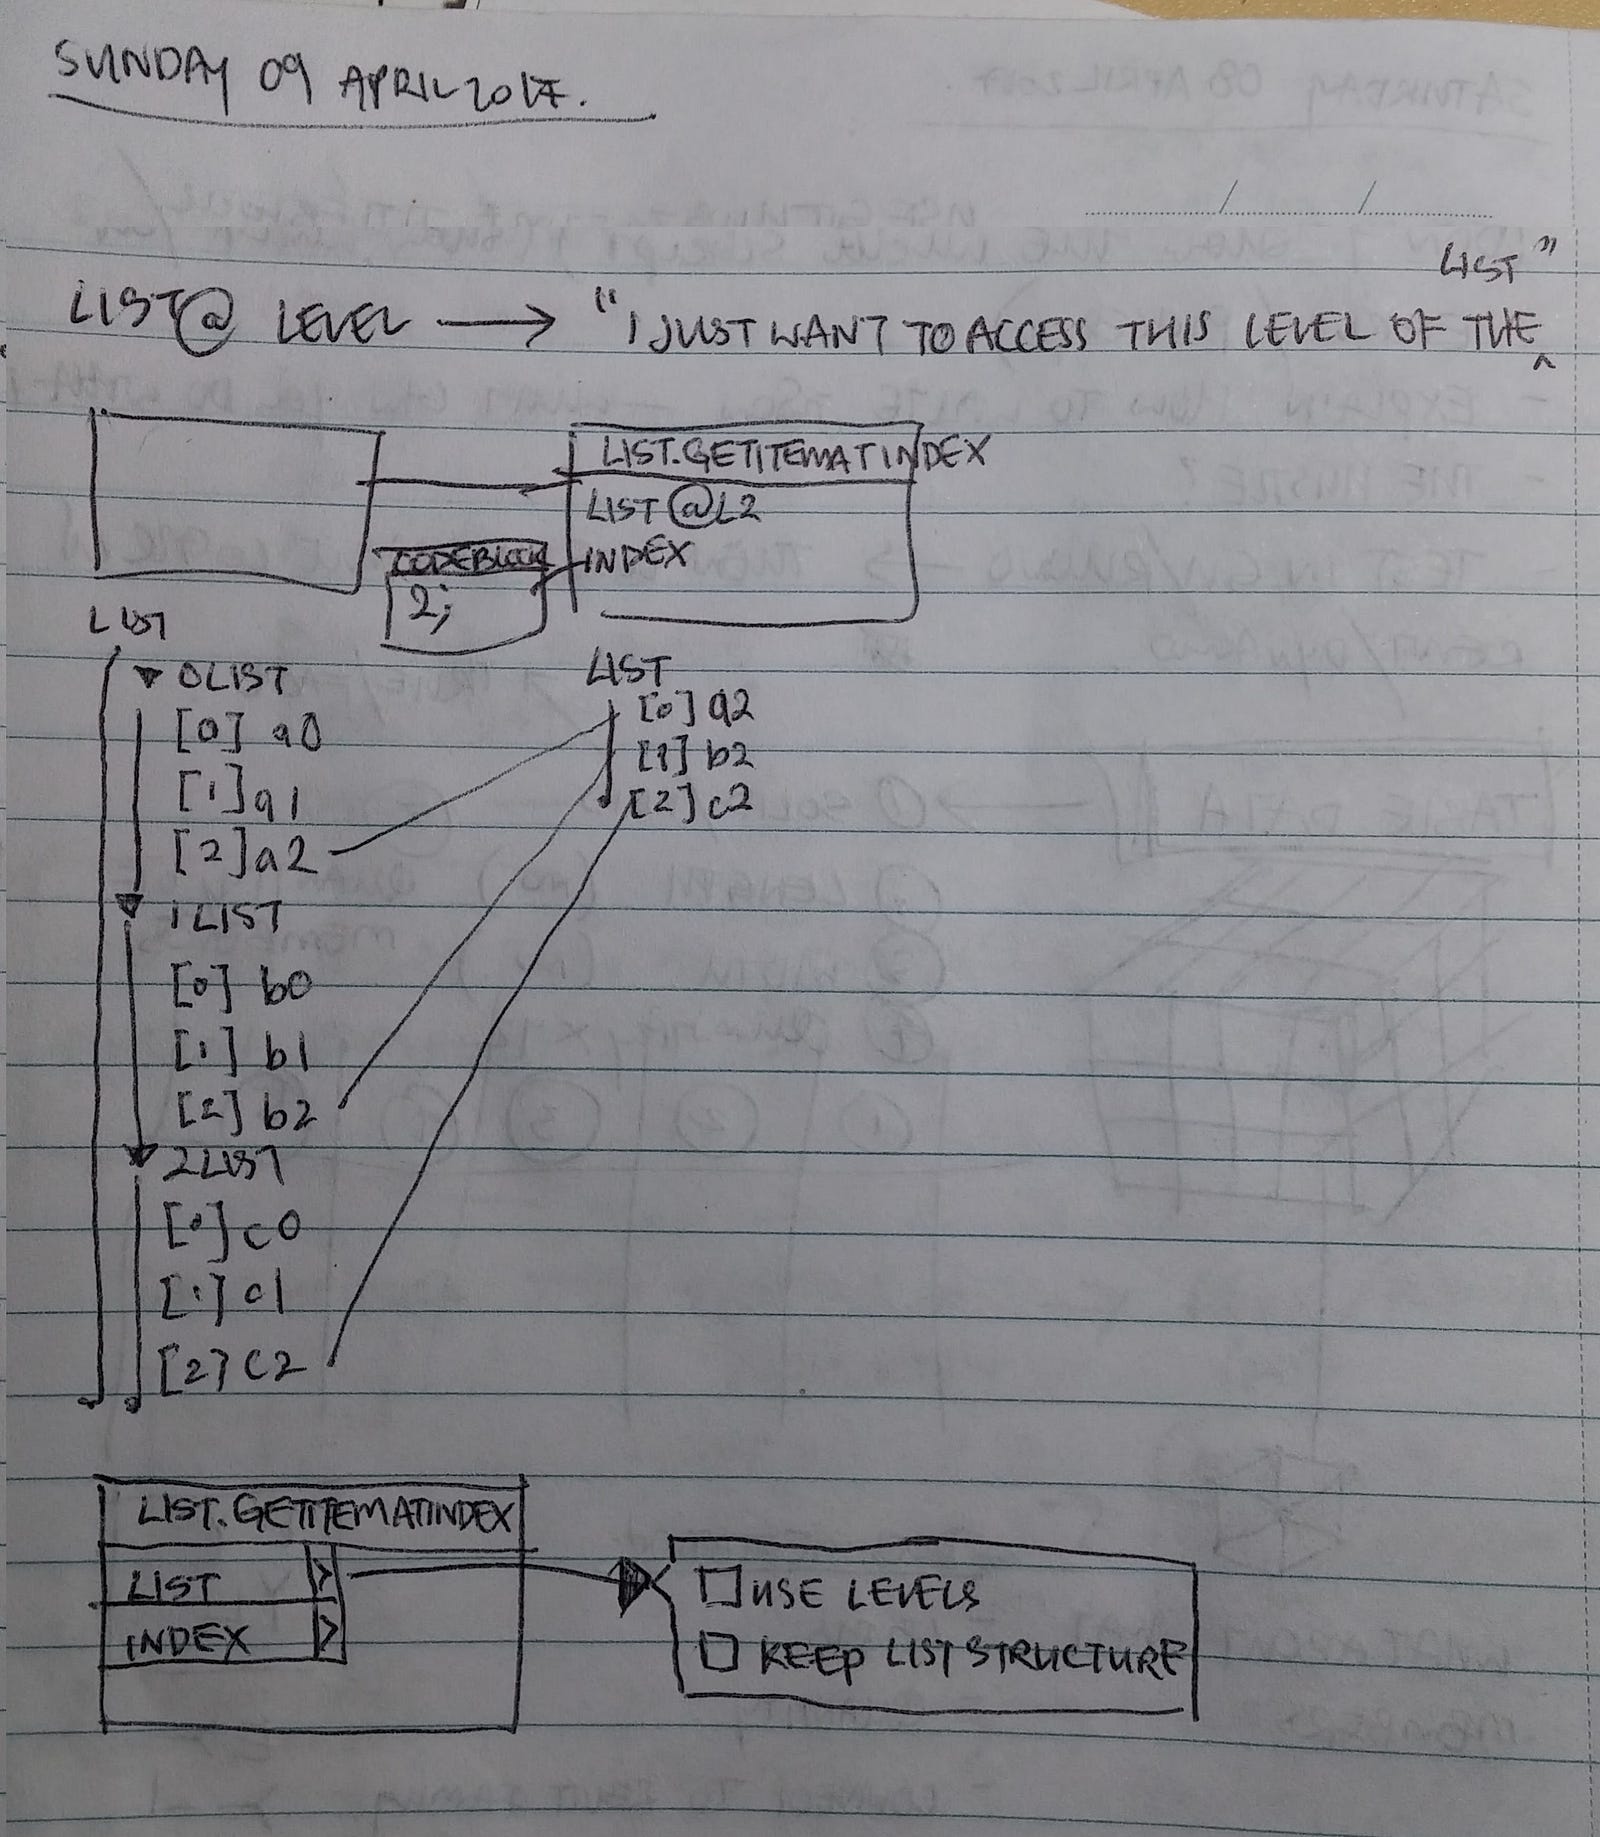 SUNDAY 09 APRIL 2017.
LIST@ LEVEL → "I JUST WANT TO ACCESS THIS LEVEL OF THE LIST"
LIST.GETITEMATINDEX
LIST @L2
INDEX
CODEBLOCK
2;
LIST
0 LIST
[0] a0
[1] a1
[2] a2
1 LIST
[0] b0
[1] b1
[2] b2
2 LIST
[0] c0
[1] c1
[2] c2
LIST
[0] a2
[1] b2
[2] c2
LIST.GETITEMATINDEX
LIST >
INDEX >
USE LEVELS
KEEP LIST STRUCTURE